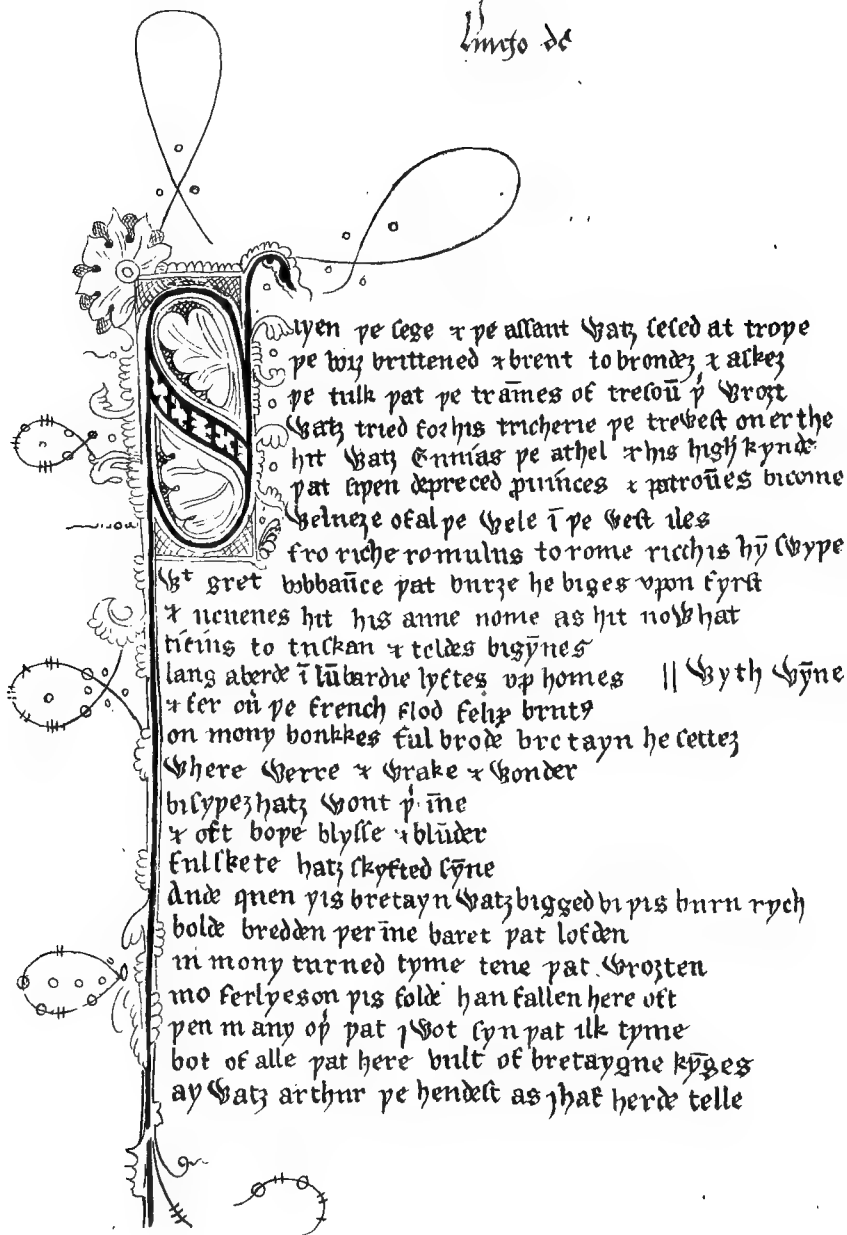 Hugo de
Siþen þe sege ⁊ þe assaut watȝ sesed at troye
þe borȝ brittened ⁊ brent to brondeȝ ⁊ askeȝ
þe tulk þat þe trãmes of tresoũ þᵉ wroȝt
watȝ tried for his tricherie þe trewest on erthe
hit watȝ Ennias þe athel ⁊ his highe kynde
þat siþen depreced ꝓuinces ⁊ patroũes bicome
welneȝe of al þe wele ĩ þe west iles
fro riche romulus to rome ricchis hỹ swyþe
wᵗ gret bobbaũce þat burȝe he biges vpon fyrst
⁊ neuenes hit his aune nome as hit now hat
ticius to tuskan ⁊ teldes bigỹnes
langaberde ĩ lũbardie lyftes vp homes || wyth wỹne
⁊ fer oũ þe french flod felix brutꝰ
on mony bonkkes ful brode bretayn he setteȝ
where werre ⁊ wrake ⁊ wonder
bi syþeȝ hatȝ wont þᵉ ĩne
⁊ oft boþe blysse ⁊ blũder
ful skete hatȝ skyfted sỹne
Ande quen þis bretayn watȝ bigged bi þis burn rych
bolde bredden þer ĩne baret þat lofden
in mony turned tyme tene þat wroȝten
mo ferlyes on þis folde han fallen here oft
þen in any oþᵉ þat I wot syn þat ilk tyme
bot of alle þat here bult of bretaygne kỹges
ay watȝ arthur þe hendest as I haf herde telle